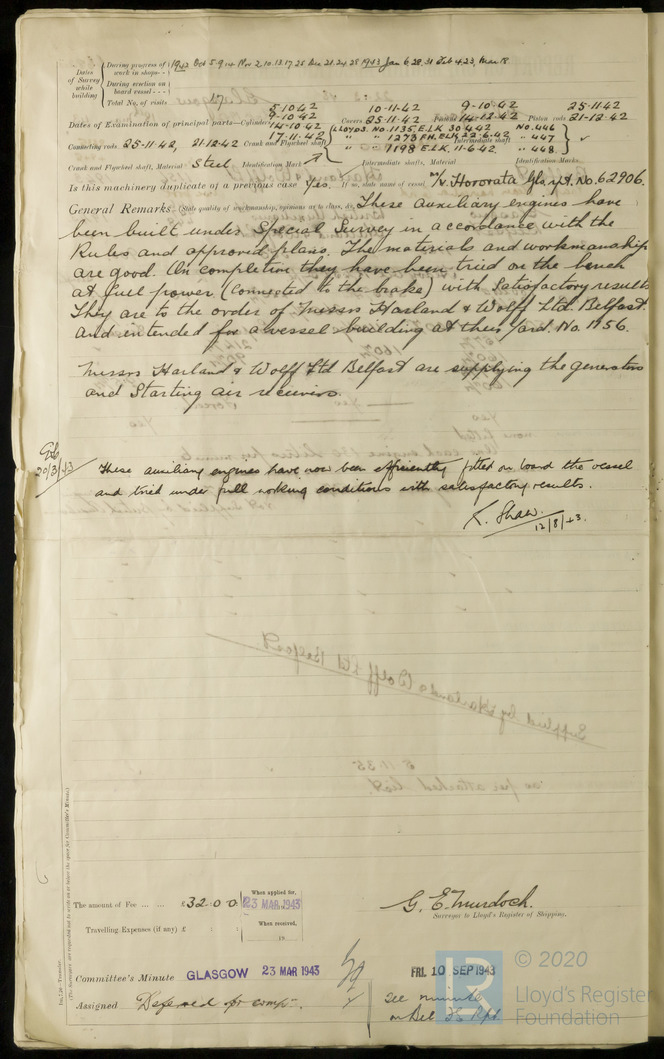 Dates of Survey while building
During progress of work in shops - - 1942 Oct 5. 9. 14 Nov 2. 10. 13. 17. 25 Dec 21. 24. 28 1943 Jan 6. 28. 31 Feb 4. 23, Mar 18
During erection on board vessel - - -
Total No. of visits 17
Dates of Examination of principal parts—Cylinders 5-10-42 9-10-42 14-10-42 17-11-42 Covers 10-11-42 25-11-42 Pistons 9-10-42 14-12-42 Piston rods 25-11-42 21-12-42
Connecting rods 25-11-42, 21-12-42 Crank and Flywheel shaft Intermediate shaft
LLOYDS. No. 1135. E.L.K 30.4.42 No. 446
" " 1273 F.H. E.L.K 22.6.42 " 447
" " 1198 E.L.K. 11.6.42 " 448
Crank and Flywheel shaft, Material Steel Identification Mark Intermediate shafts, Material Identification Marks
Is this machinery duplicate of a previous case Yes. If so, state name of vessel M/V. Hororata Gls rpt. No. 62906.
General Remarks (State quality of workmanship, opinions as to class, &c. These auxiliary engines have
been built under Special Survey in accordance with the
Rules and approved plans. The materials and workmanship
are good. On completion they have been tried on the bench
at full power (connected to the brake) with satisfactory results
They are to the order of Messrs Harland & Wolff Ltd. Belfast.
and intended for a vessel building at their Yard. No. 1156.
Messrs Harland & Wolff Ltd Belfast are supplying the generators
and Starting air receivers.
20/3/43
These auxiliary engines have now been efficiently fitted on board the vessel
and tried under full working conditions with satisfactory results.
K. Shaw.
12/8/43.
Supplied by Harland & Wolff Ltd Belfast.
as per attached list.
(The Surveyors are requested not to write on or below the space for Committee's Minute.)
The amount of Fee ... ... £32.0.0
When applied for,
23 MAR. 1943
Travelling Expenses (if any) £
When received,
19
G. E. Murdoch.
Surveyor to Lloyd's Register of Shipping.
Committee's Minute GLASGOW 23 MAR 1943
FRI. 10 SEP 1943
Assigned Deferred for comp.
See minute
on Bel
© 2020
Lloyd's Register
Foundation